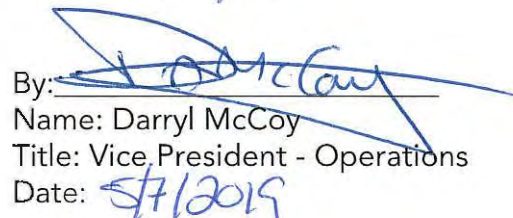 By: D McCoy
Name: Darryl McCoy
Title: Vice President - Operations
Date: 5/7/2019